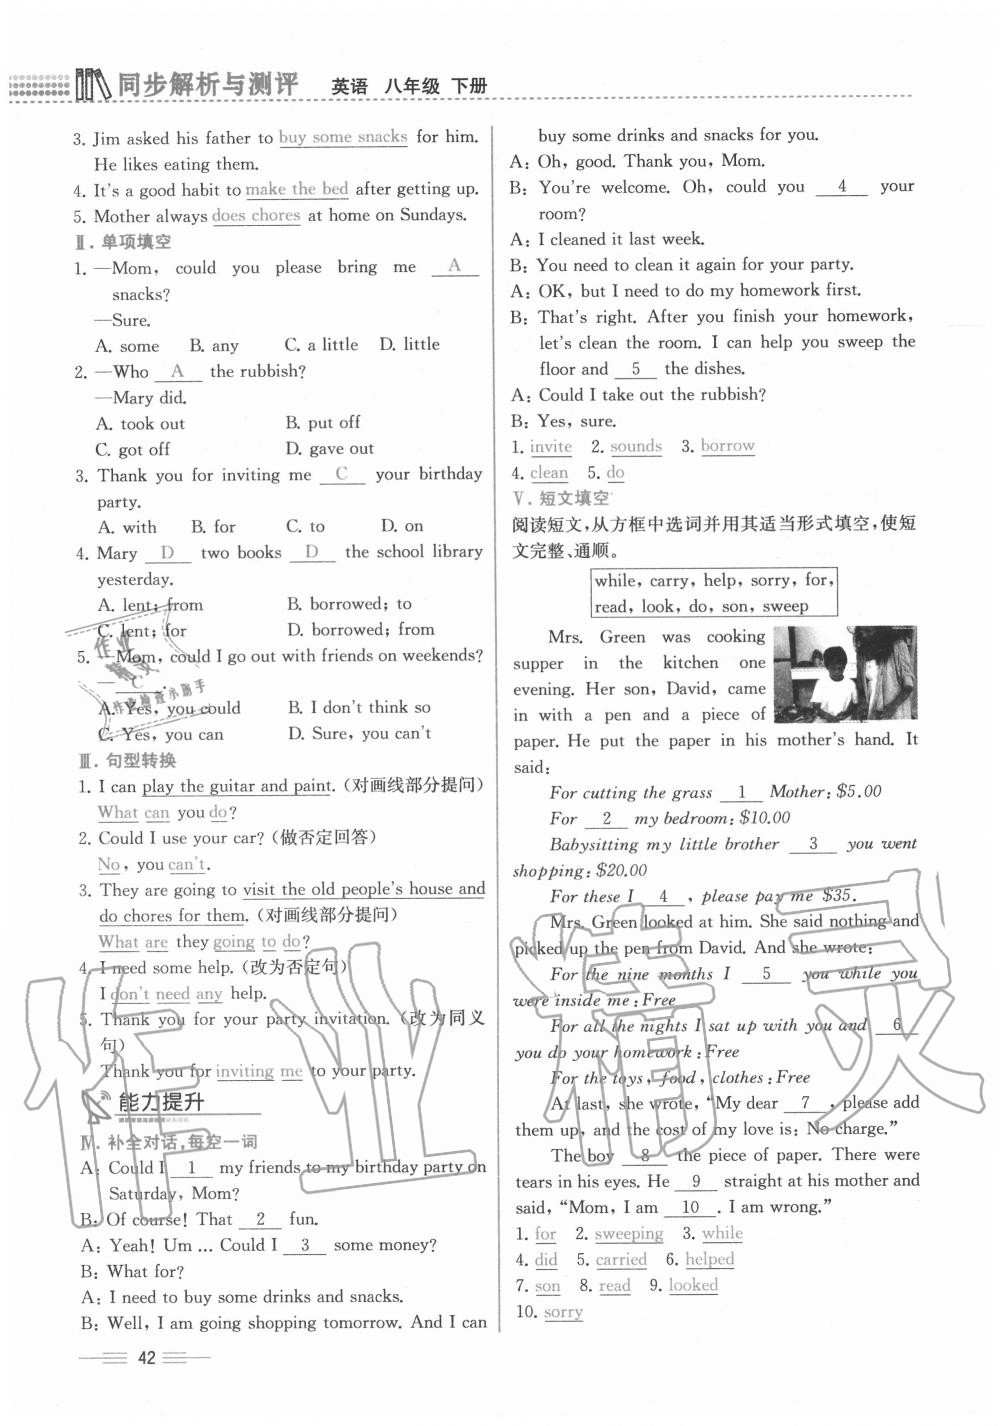 同步解析与测评 英语 八年级 下册
3. Jim asked his father to buy some snacks for him.
He likes eating them.
4. It's a good habit to make the bed after getting up.
5. Mother always does chores at home on Sundays.
Ⅱ. 单项填空
1. —Mom, could you please bring me A
snacks?
—Sure.
A. some B. any C. a little D. little
2. —Who A the rubbish?
—Mary did.
A. took out B. put off
C. got off D. gave out
3. Thank you for inviting me C your birthday
party.
A. with B. for C. to D. on
4. Mary D two books D the school library
yesterday.
A. lent; from B. borrowed; to
C. lent; for D. borrowed; from
5. —Mom, could I go out with friends on weekends?
— C .
A. Yes, you could B. I don't think so
C. Yes, you can D. Sure, you can't
Ⅲ. 句型转换
1. I can play the guitar and paint. (对画线部分提问)
What can you do?
2. Could I use your car? (做否定回答)
No, you can't.
3. They are going to visit the old people's house and
do chores for them. (对画线部分提问)
What are they going to do?
4. I need some help. (改为否定句)
I don't need any help.
5. Thank you for your party invitation. (改为同义
句)
Thank you for inviting me to your party.
能力提升
Ⅳ. 补全对话,每空一词
A: Could I 1 my friends to my birthday party on
Saturday, Mom?
B: Of course! That 2 fun.
A: Yeah! Um ... Could I 3 some money?
B: What for?
A: I need to buy some drinks and snacks.
B: Well, I am going shopping tomorrow. And I can
42
buy some drinks and snacks for you.
A: Oh, good. Thank you, Mom.
B: You're welcome. Oh, could you 4 your
room?
A: I cleaned it last week.
B: You need to clean it again for your party.
A: OK, but I need to do my homework first.
B: That's right. After you finish your homework,
let's clean the room. I can help you sweep the
floor and 5 the dishes.
A: Could I take out the rubbish?
B: Yes, sure.
1. invite 2. sounds 3. borrow
4. clean 5. do
Ⅴ. 短文填空
阅读短文,从方框中选词并用其适当形式填空,使短
文完整、通顺。
while, carry, help, sorry, for,
read, look, do, son, sweep
Mrs. Green was cooking
supper in the kitchen one
evening. Her son, David, came
in with a pen and a piece of
paper. He put the paper in his mother's hand. It
said:
For cutting the grass 1 Mother: $5.00
For 2 my bedroom: $10.00
Babysitting my little brother 3 you went
shopping: $20.00
For these I 4 , please pay me $35.
Mrs. Green looked at him. She said nothing and
picked up the pen from David. And she wrote:
For the nine months I 5 you while you
were inside me: Free
For all the nights I sat up with you and 6
you do your homework: Free
For the toys, food, clothes: Free
At last, she wrote, "My dear 7 , please add
them up, and the cost of my love is: No charge."
The boy 8 the piece of paper. There were
tears in his eyes. He 9 straight at his mother and
said, "Mom, I am 10 . I am wrong."
1. for 2. sweeping 3. while
4. did 5. carried 6. helped
7. son 8. read 9. looked
10. sorry
作业精灵